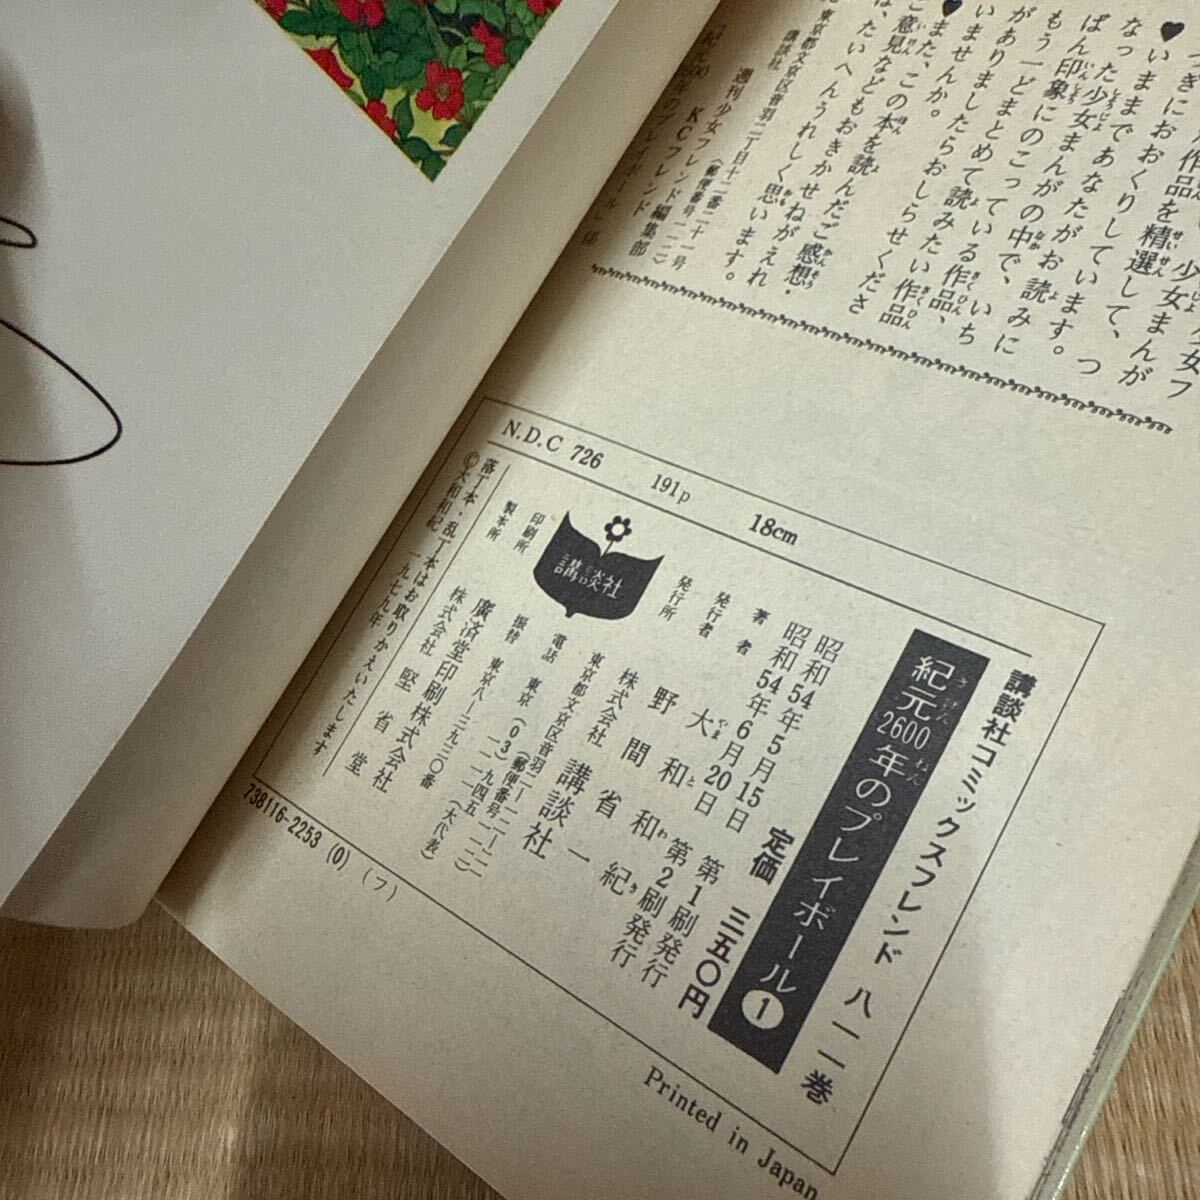 つぎに
作品を精選して、
♥いままでおおくりしています。つ
なった少女まんががお読みに
ぱん印象にのこっている作品、
もう一どまとめて読みたい作品
がありましたらおしらせくださ
いませんか。
♥また、この本を読んだご感想・
ご意見などもおきかせねがえれ
ば、たいへんうれしく思います。
東京都文京区音羽二丁目十二番二十一号
講談社
週刊少女フレンド
KCフレンド編集部
年のプレイボール」係
N.D.C 726 191p 18cm
講談社コミックスフレンド 八一一巻
紀元2600年のプレイボール①
昭和54年5月15日 第1刷発行
昭和54年6月20日 第2刷発行
定価 三五〇円
著者 大和和紀
発行者 野間省一
発行所 株式会社 講談社
東京都文京区音羽二—一二—二一
(郵便番号一一二)
電話 東京(03)九四五—一一一一(大代表)
振替 東京八—三九三〇番
印刷所 廣済堂印刷株式会社
製本所 株式会社 堅省堂
講談社
落丁本・乱丁本はお取りかえいたします
©大和和紀 一九七九年
738116-2253 (0) (フ)
Printed in Japan